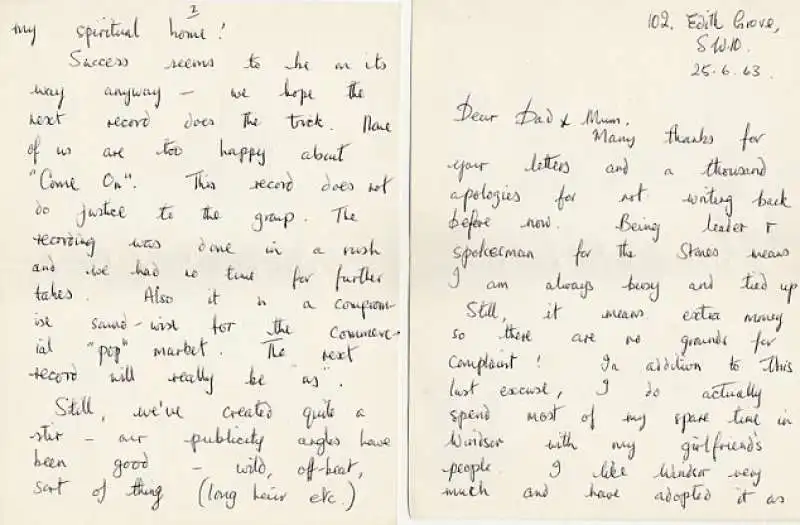 102, Edith Grove,
S.W.10.
25.6.63.
Dear Dad & Mum.
Many thanks for
your letters and a thousand
apologies for not writing back
before now. Being leader &
spokesman for the Stones means
I am always busy and tied up
Still, it means extra money
so there are no grounds for
complaint! In addition to this
last excuse, I do actually
spend most of my spare time in
Windsor with my girlfriend's
people. I like Windsor very
much and have adopted it as
2
my spiritual home!
Success seems to be on its
way anyway – we hope the
next record does the trick. None
of us are too happy about
"Come On". This record does not
do justice to the group. The
recording was done in a rush
and we had no time for further
takes. Also it is a comprom-
ise sound-wise for the commerc-
ial "pop" market. The next
record will really be "us".
Still, we've created quite a
stir – our publicity angles have
been good – wild, off-beat,
sort of thing (long hair etc.)